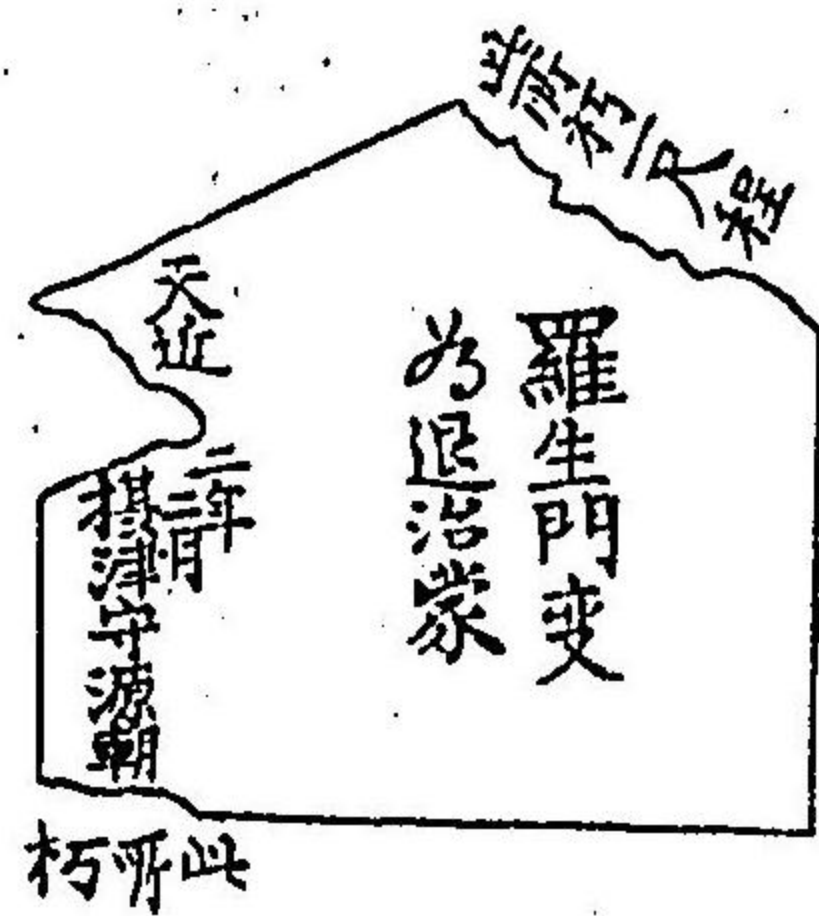 此所朽一尺程
羅生門変
為退治蒙
天延
二年
月
摂津守源朝
此所朽